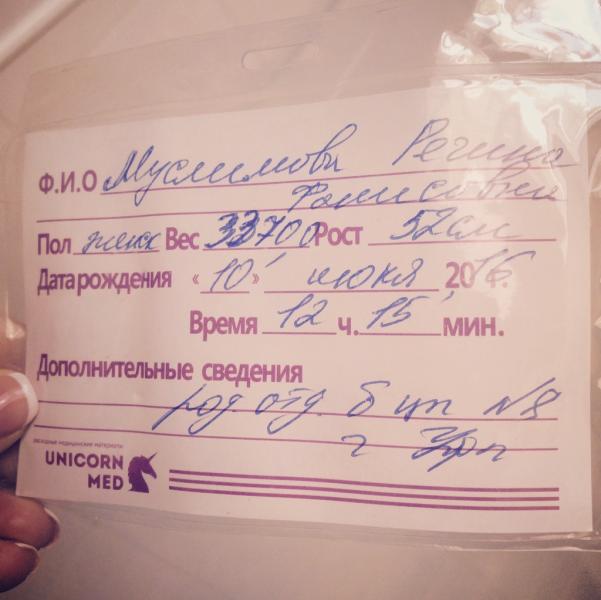 Ф.И.О Муслимова Регина
Фанисовна
Пол жен Вес 3370,0 Рост 52см
Дата рождения «10» июня 2016г.
Время 12 ч. 15 мин.
Дополнительные сведения
род. отд. б цп №8
г
РАСХОДНЫЕ МЕДИЦИНСКИЕ МАТЕРИАЛЫ
UNICORN
MED